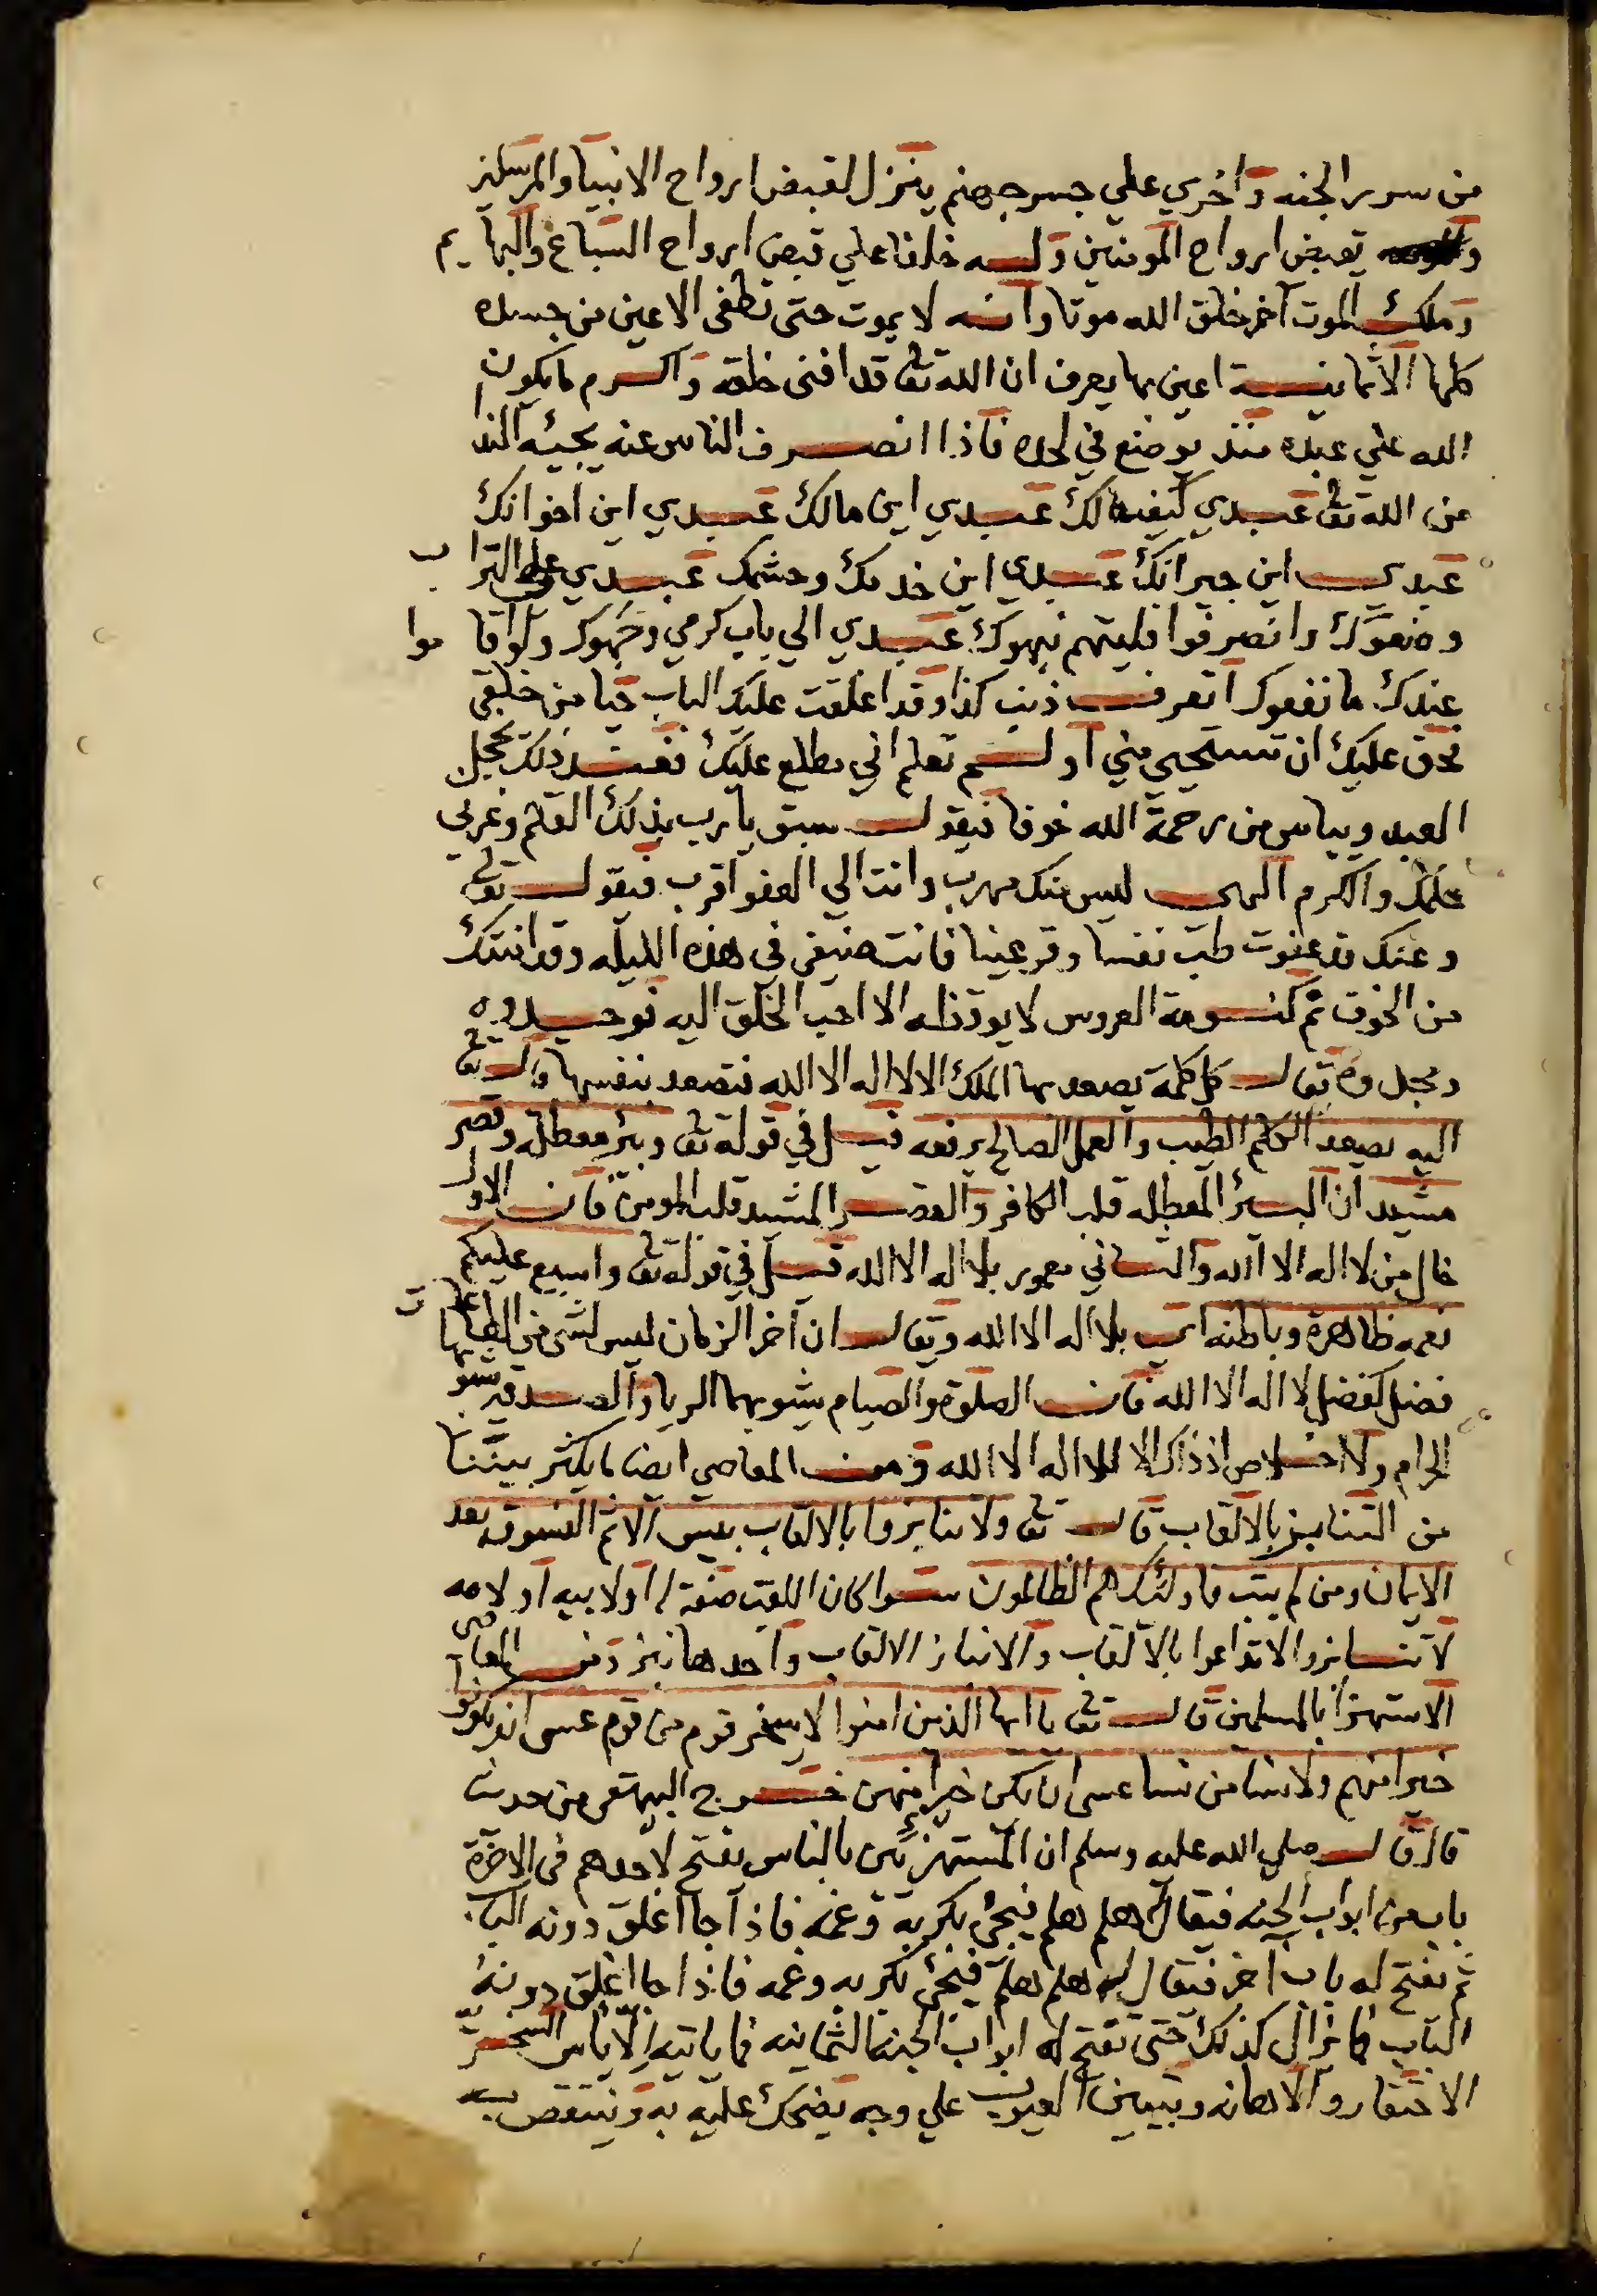 من سرر الجنه واخري علي جسر جهنم ينزل لقبض ارواح الانبيا والمرسلين
يقبض ارواح المومنين وله خلفا علي قبض ارواح السباع والبهايم
وملك الموت آخر خلق الله موتا وانه لا يموت حتى تطفى الاعين من جسده
كلها الا ثمانية اعين بها يعرف ان الله تع قد افنى خلقه واكرم ما يكون
الله علي عبده منذ يوضع في لحده فاذا انصرف الناس عنه يجيئه الندا
من الله تع عبدي كيف مالك عبدي اين مالك عبدي اين اخوانك
عبدي اين جيرانك عبدي اين خدمك وحشمك عبدي علي التراب
وضعوك وانصرفوا فليتهم نبهوك عبدي الي باب كرمي وجهوك ولو اقاموا
عندك ما نفعوك اتعرف ذنب كذا وقد اغلقت عليك الباب حيا من خلقي
فحق عليك ان تستحيي مني او لم تعلم اني مطلع عليك فعند ذلك يخجل
العبد ويياس من رحمة الله خوفا فيقول سبق يا رب بذلك القلم وغرني
حلمك والكرم الهي ليس منك مهرب وانت الي العفو اقرب فيقول تعلي
وعنك قد عفوت طب نفسا وقر عينا فانت ضيفي في هذه الليله وقد امنتك
من الخوف نم كنومة العروس لا يوقظه الا احب الخلق اليه توحيده
ويقال كل كلمة يصعد بها الملك الا لا اله الا الله فتصعد بنفسها قال تع
اليه يصعد الكلم الطيب والعمل الصالح يرفعه قيل في قوله تع وبئر معطلة وقصر
مشيد ان البئر المعطله قلب الكافر والقصر المشيد قلب المومن فان الاول
خال من لا اله الا الله والثاني معمور بلا اله الا الله قيل في قوله تع واسبغ عليكم
نعمه ظاهرة وباطنه اي بلا اله الا الله ويقال ان آخر الزمان ليس لشي من الطاعات
فضل كفضل لا اله الا الله فان الصلوة والصيام يشوبها الريا والصدقة يشوبها
الحرام ولا اخلاص اذ ذاك الا للا اله الا الله ومن المعاصي ايضا ما يكثر بيننا
من التنابز بالالقاب قال تع ولا تنابزوا بالالقاب بئس الاسم الفسوق بعد
الايمان ومن لم يتب فاولئك هم الظالمون سوا كان اللقب صفة له او لابيه او لامه
لا تنابزوا لا تداعوا بالالقاب والانباز الالقاب واحدها نبز ومن المعاصي
الاستهزا بالمسلمين قال تع يا ايها الذين امنوا لا يسخر قوم من قوم عسى ان يكونوا
خيرا منهم ولا نسا من نسا عسى ان يكن خيرا منهن خرج البيهقي من حديث
قال قال صلي الله عليه وسلم ان المستهزئين بالناس يفتح لاحدهم في الاخرة
باب من ابواب الجنه فيقال هلم هلم فيجئ بكربه وغمه فاذا جا اغلق دونه الباب
ثم يفتح له باب آخر فيقال له هلم هلم فيجئ بكربه وغمه فاذا جا اغلق دونه
الباب فما يزال كذلك حتى يفتح له ابواب الجنه الثمانيه فما ياتيه الاياس السخرية
الاحتقار والاهانه وتبيين العيوب علي وجه يضحك عليه به وينتقص به